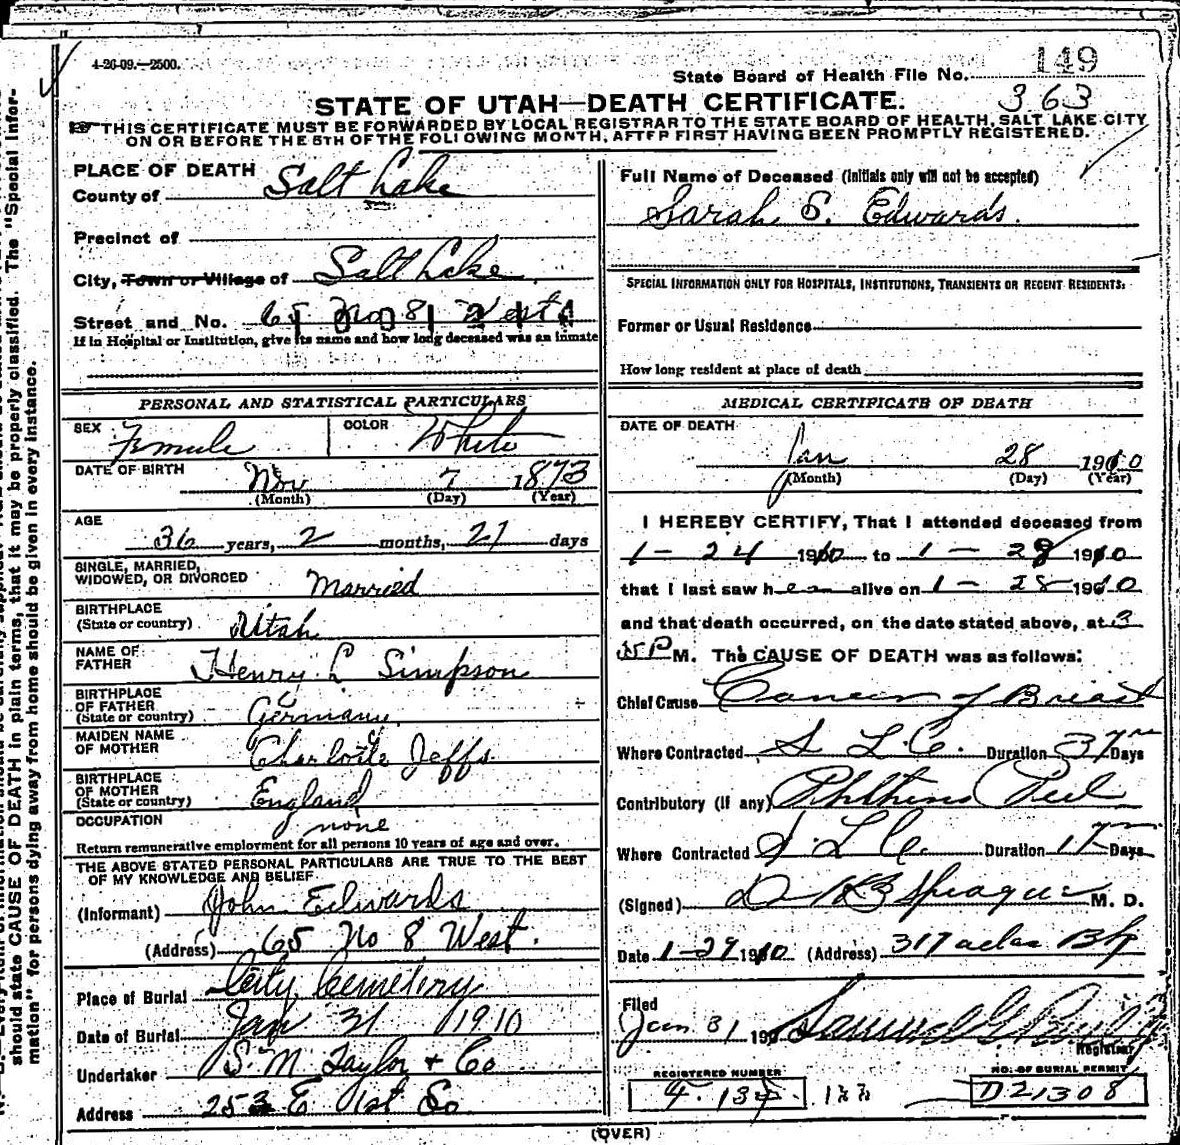 4-26-09.—2500.
149
State Board of Health File No.
363
STATE OF UTAH—DEATH CERTIFICATE.
THIS CERTIFICATE MUST BE FORWARDED BY LOCAL REGISTRAR TO THE STATE BOARD OF HEALTH, SALT LAKE CITY
ON OR BEFORE THE 5TH OF THE FOLLOWING MONTH, AFTER FIRST HAVING BEEN PROMPTLY REGISTERED.
PLACE OF DEATH
County of Salt Lake
Precinct of
City, Town or Village of Salt Lake
Street and No. 65 No 8 West
If in Hospital or Institution, give its name and how long deceased was an inmate
PERSONAL AND STATISTICAL PARTICULARS
SEX Female COLOR White
DATE OF BIRTH Nov 7 1873
(Month) (Day) (Year)
AGE
36 years, 2 months, 21 days
SINGLE, MARRIED,
WIDOWED, OR DIVORCED Married
BIRTHPLACE
(State or country) Utah
NAME OF
FATHER Henry L Simpson
BIRTHPLACE
OF FATHER
(State or country) Germany
MAIDEN NAME
OF MOTHER Charlotte Jeffs
BIRTHPLACE
OF MOTHER
(State or country) England
OCCUPATION none
Return remunerative employment for all persons 10 years of age and over.
THE ABOVE STATED PERSONAL PARTICULARS ARE TRUE TO THE BEST
OF MY KNOWLEDGE AND BELIEF
(Informant) John Edwards
(Address) 65 No 8 West.
Place of Burial City Cemetery
Date of Burial Jan 31 1910
Undertaker S. M. Taylor & Co
Address 253 E 1st So.
Full Name of Deceased (Initials only will not be accepted)
Sarah S. Edwards.
SPECIAL INFORMATION ONLY FOR HOSPITALS, INSTITUTIONS, TRANSIENTS OR RECENT RESIDENTS:
Former or Usual Residence
How long resident at place of death
MEDICAL CERTIFICATE OF DEATH
DATE OF DEATH
Jan 28 1910
(Month) (Day) (Year)
I HEREBY CERTIFY, That I attended deceased from
1-24 1910 to 1-28 1910
that I last saw her alive on 1-28 1910
and that death occurred, on the date stated above, at 3
P M. The CAUSE OF DEATH was as follows:
Chief Cause Cancer of Breast
Where Contracted S L C. Duration 3 Days
Contributory (if any) Phthisis Pul
Where Contracted S. L C. Duration 1 Days
(Signed) D Sprague M. D.
Date 1-29 1910 (Address) 317 Atlas Blk
Filed
Jan 31 1910 Samuel G Registrar
REGISTERED NUMBER
NO. OF BURIAL PERMIT
D21308
(OVER)
should state CAUSE OF DEATH in plain terms, that it may be properly classified. The "Special Infor-
mation" for persons dying away from home should be given in every instance.